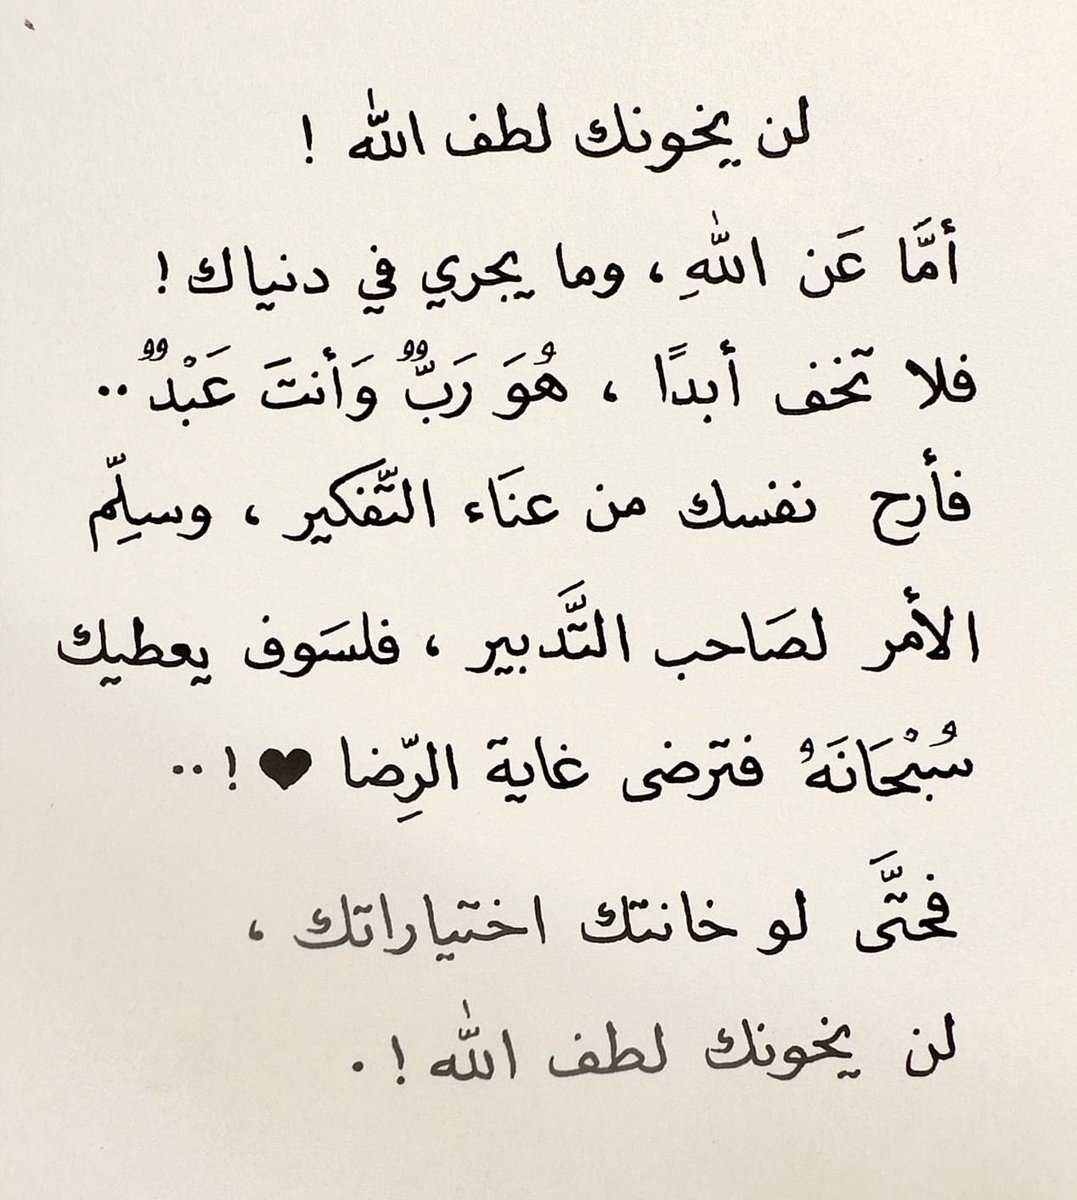 لن يخونك لطف الله !
أمَّا عَن اللهِ ، وما يجري في دنياك !
فلا تخف أبدًا ، هُوَ رَبٌّ وَأنتَ عَبْدٌ ..
فأرح نفسك من عنَاء التّفكير ، وسلِّم
الأمر لصَاحب التَّدبير ، فلسَوف يعطيك
سُبْحَانَهُ فترضى غاية الرِّضا ♥ ! ..
فحتَّى لو خانتك اختياراتك ،
لن يخونك لطف الله ! .